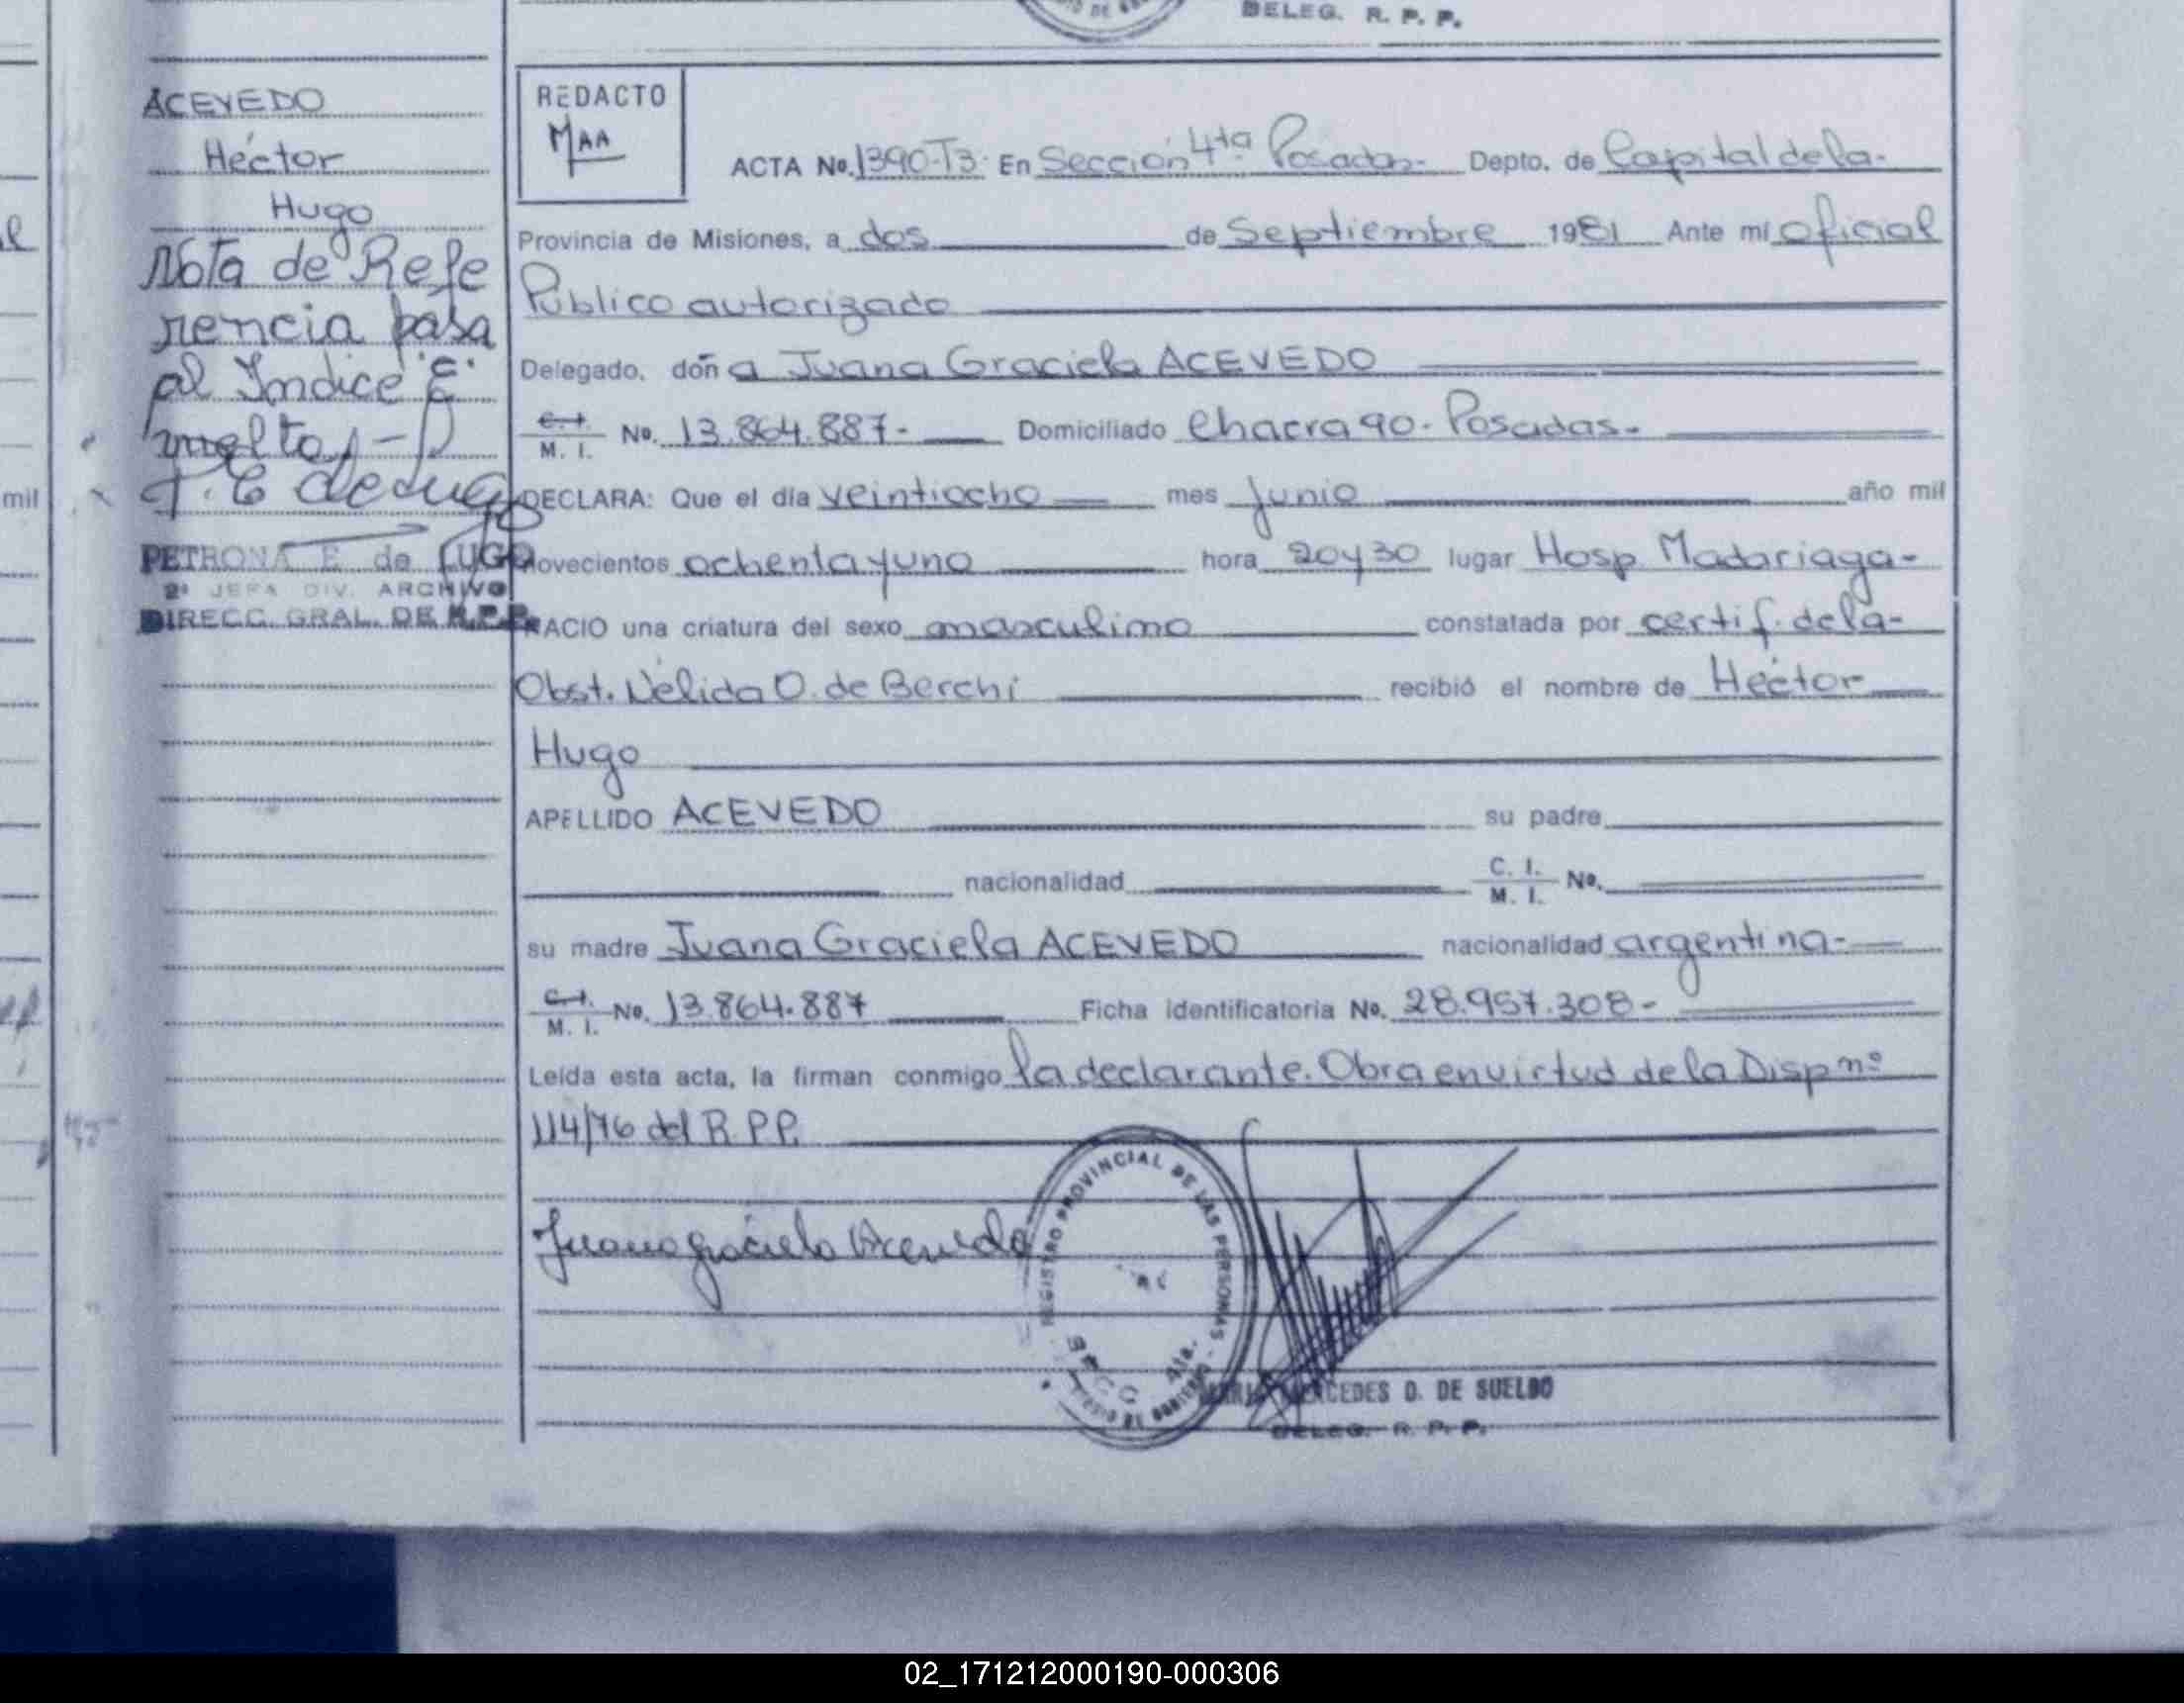 DELEG. R. P. P.
ACEVEDO
Héctor
Hugo
Nota de Refe
rencia pasa
al Indice "E"
vuelta,-
PETRONA E de LUGO
2ª JEFA DIV. ARCHIVO
DIRECC. GRAL. DE R.P.P.
REDACTO
MAA
ACTA No. 1390-T3- En Sección 4ta Posadas- Depto. de Capital de la-
Provincia de Misiones, a dos de Septiembre 1981 Ante mí oficial
Público autorizado
Delegado, doña Juana Graciela ACEVEDO
C. I. / M. I. No. 13.864.887- Domiciliado Chacra 90- Posadas-
DECLARA: Que el día veintiocho mes junio año mil
novecientos ochenta y uno hora 20 y 30 lugar Hosp. Madariaga-
NACIO una criatura del sexo masculino constatada por certif. de la-
Obst. Nélida O. de Berchi recibió el nombre de Héctor
Hugo
APELLIDO ACEVEDO su padre
nacionalidad C. I. / M. I. No.
su madre Juana Graciela ACEVEDO nacionalidad argentina-
C. I. / M. I. No. 13.864.887 Ficha identificatoria No. 28.957.308-
Leída esta acta, la firman conmigo la declarante. Obra en virtud de la Disp nº
114/76 del R.P.P.
Juana Graciela Acevedo
REGISTRO PROVINCIAL DE LAS PERSONAS
SECC 4ta.
MARIA MERCEDES D. DE SUELDO
DELEG. R. P. P.
mil
02_171212000190-000306